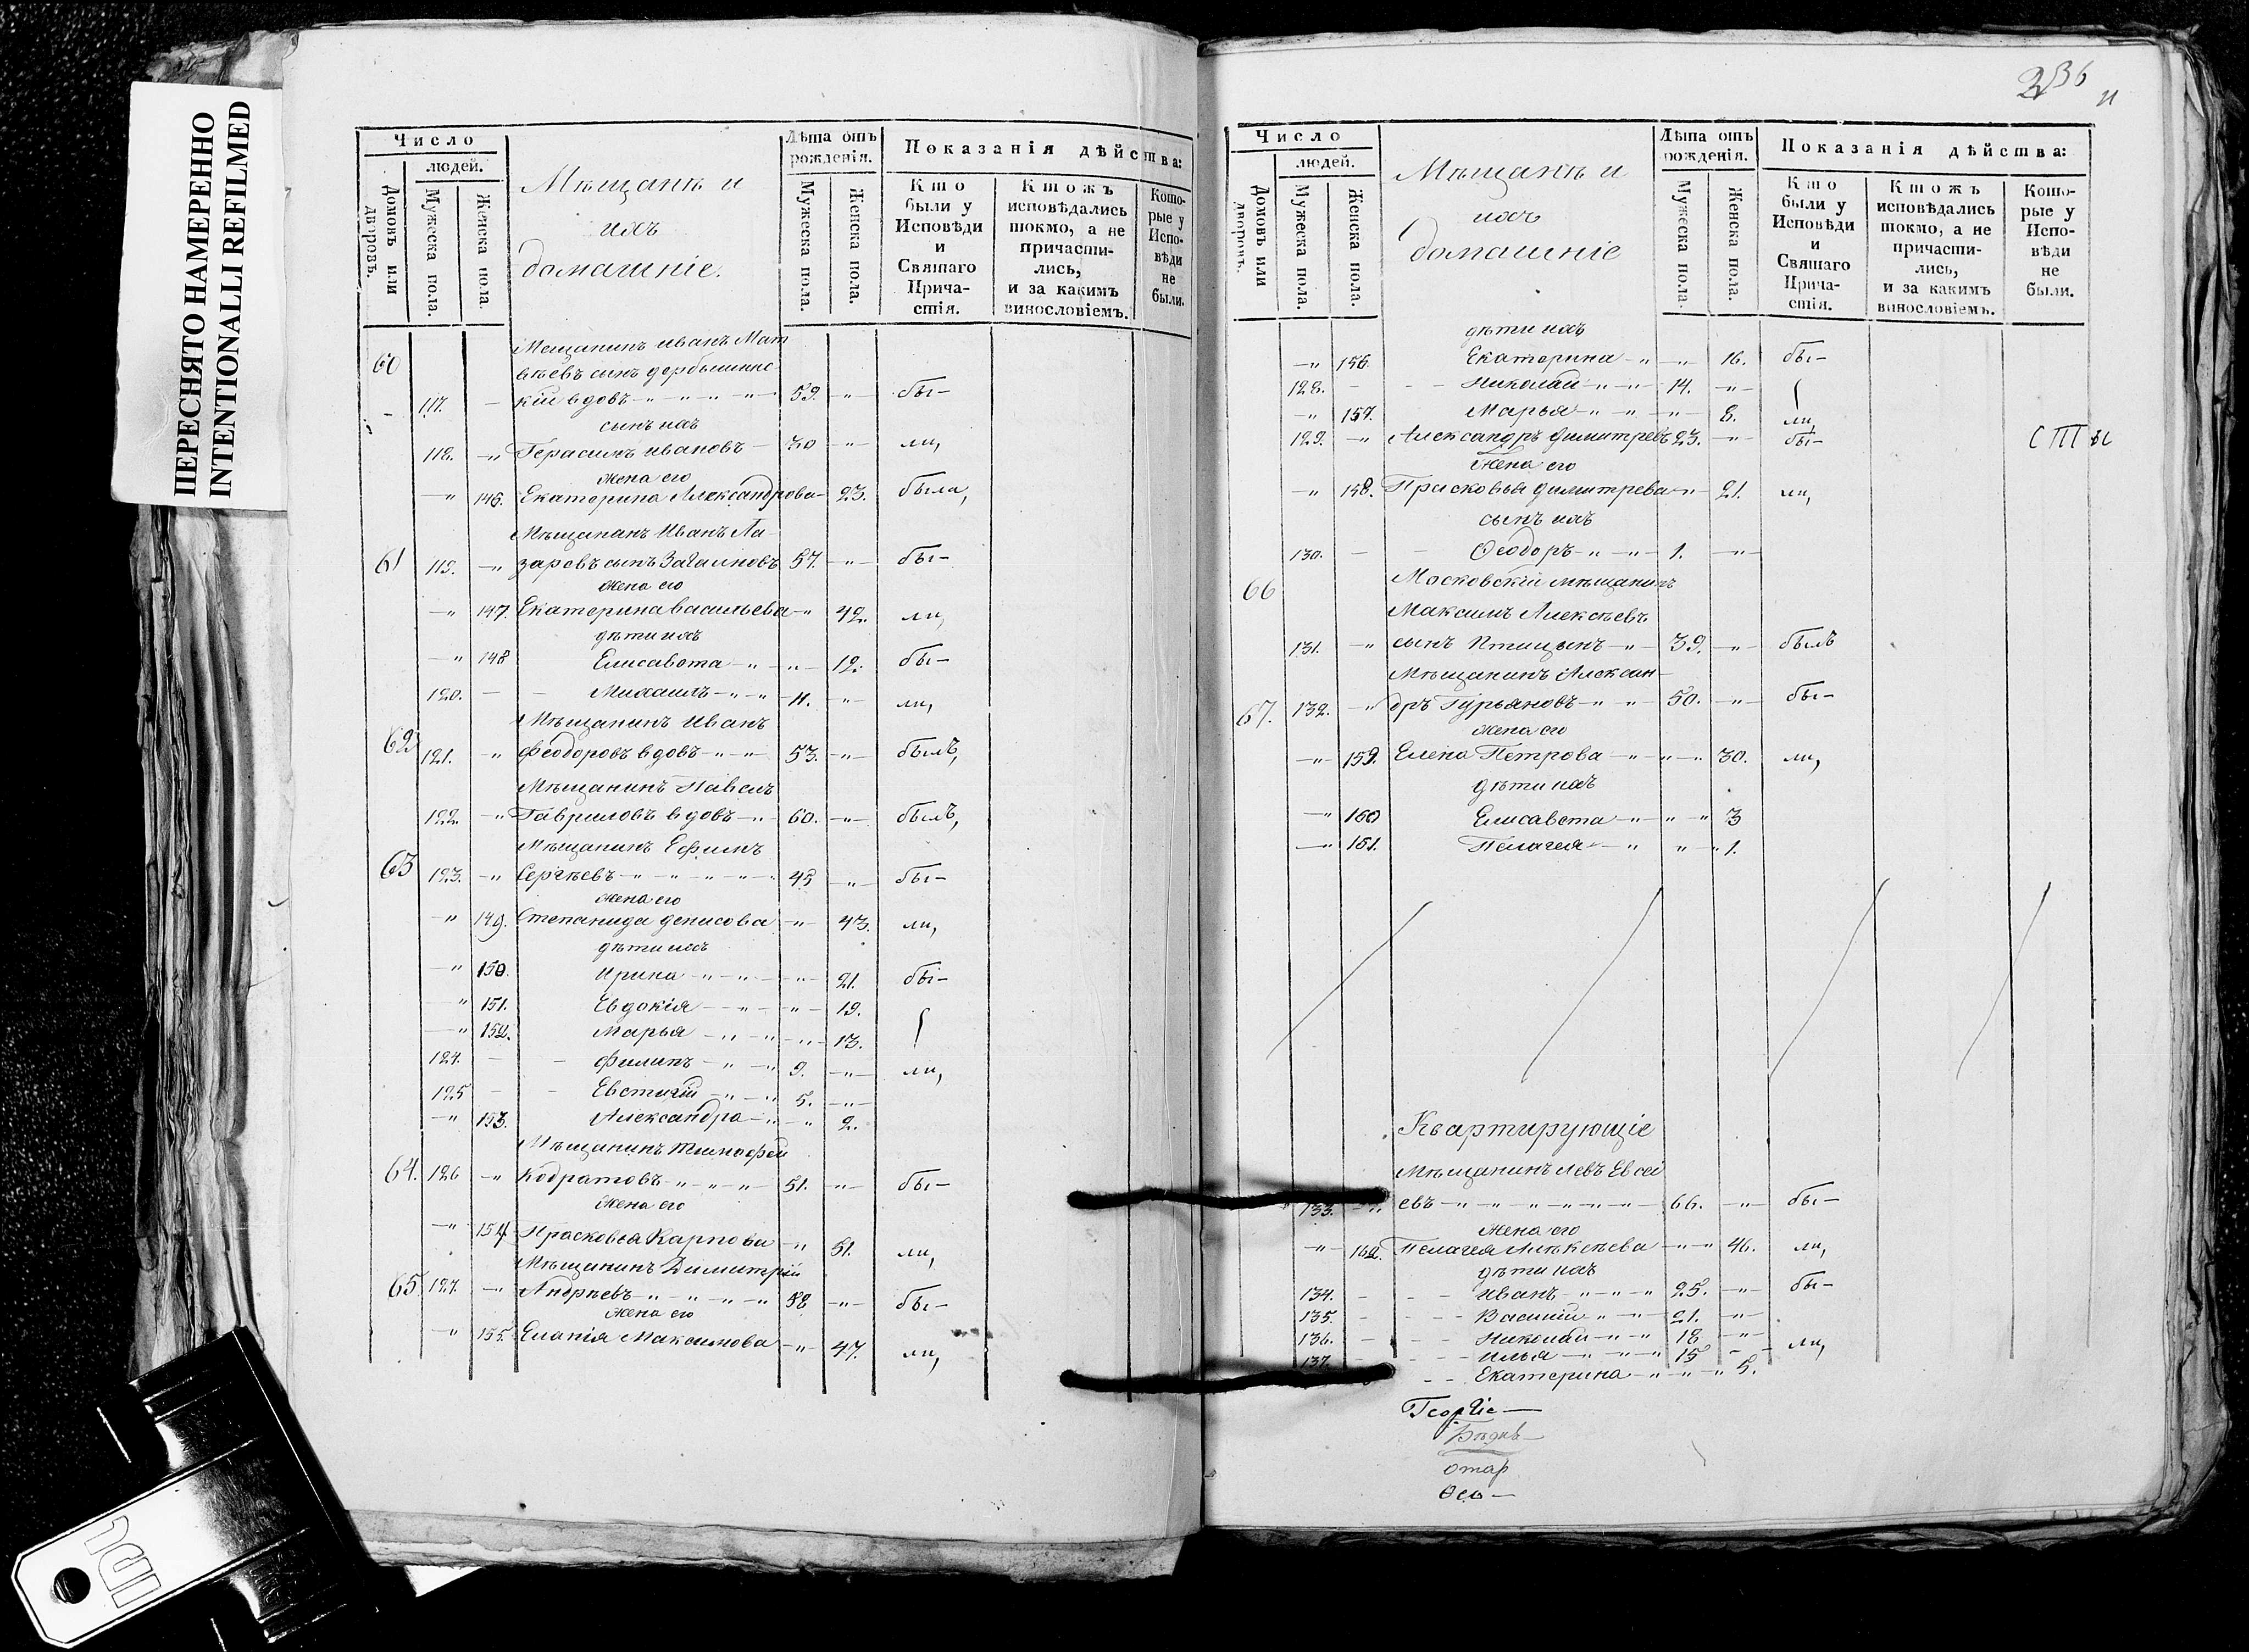 ПЕРЕСНЯТО НАМЕРЕННО
INTENTIONALLI REFILMED
Число
людей.
Домовъ или дворовъ.
Мужеска пола.
Женска пола.
Мѣщанѣ и
ихъ
домашніе.
Лѣта отъ рожденія.
Мужеска пола.
Женска пола.
Показанія дѣйства:
Кто были у Исповѣди и Святаго Прича-стія.
Ктожъ исповѣдались токмо, а не причасти-лись, и за какимъ винословіемъ.
Кото-рые у Испо-вѣди не были.
60 Мещанинъ Иванъ Мат
вѣевъ сынъ
117. — кій вдовъ 59. бы-
сынъ ихъ
118. Герасимъ Ивановъ — 30 ли,
жена его
146. Екатерина Александрова 23. была,
Мѣщанинъ Иванъ Ла-
61 119. заревъ сынъ 57. бы-
жена его
147. Екатерина Васильева 42. ли,
дѣти ихъ
148 Елисавета 12. бы-
120. Михаилъ 11. ли,
Мѣщанинъ Иванъ
62 121. Феодоровъ вдовъ 53. былъ,
Мѣщанинъ Павелъ
122. Гавриловъ вдовъ 60. былъ,
Мѣщанинъ Ефимъ
63 123. Сергѣевъ 45 бы-
жена его
149. Степанида Денисова 43. ли,
дѣти ихъ
150. Ирина 21. бы-
151. Евдокія 19.
152. Марья 13.
124. Филипъ 9. ли,
125 Евстигній 5.
153. Александра 2.
Мѣщанинъ Тимофей
64. 126 Кодратовъ 51. бы-
жена его
154 Прасковья Карпова 51. ли,
Мѣщанинъ Димитрій
65 127. Андрѣевъ 58 бы-
жена его
155. Максимова 47. ли,
236
Число
людей.
Домовъ или дворовъ.
Мужеска пола.
Женска пола.
Мѣщанѣ и
ихъ
домашніе
Лѣта отъ рожденія.
Мужеска пола.
Женска пола.
Показанія дѣйства:
Кто были у Исповѣди и Святаго Прича-стія.
Ктожъ исповѣдались токмо, а не причасти-лись, и за какимъ винословіемъ.
Кото-рые у Испо-вѣди не были.
дѣти ихъ
156. Екатерина 16. бы-
128. Николай 14.
157. Марья 8. ли,
129. Александръ Димитревъ 23. бы-
жена его
158. Прасковья Димитрева 21. ли,
сынъ ихъ
130. Ѳеодоръ 1.
66 Московскій мѣщанинъ
Максимъ Алексѣевъ
131. сынъ Птицынъ 39. былъ
Мѣщанинъ Алексан-
67. 132. дръ Гурьяновъ 50. бы-
жена его
159. Елена Петрова 30. ли,
дѣти ихъ
160 Елисавета 3
161. Пелагея 1.
Квартирующіе
Мѣщанинъ Левъ Евсѣ
133. евъ 66. бы-
жена его
162. Пелагея Алѣксѣева 46. ли,
дѣти ихъ
134. Иванъ 25. бы-
135. Василій 21.
136. Николай 18 ли,
137. Илья 15
Екатерина 5.